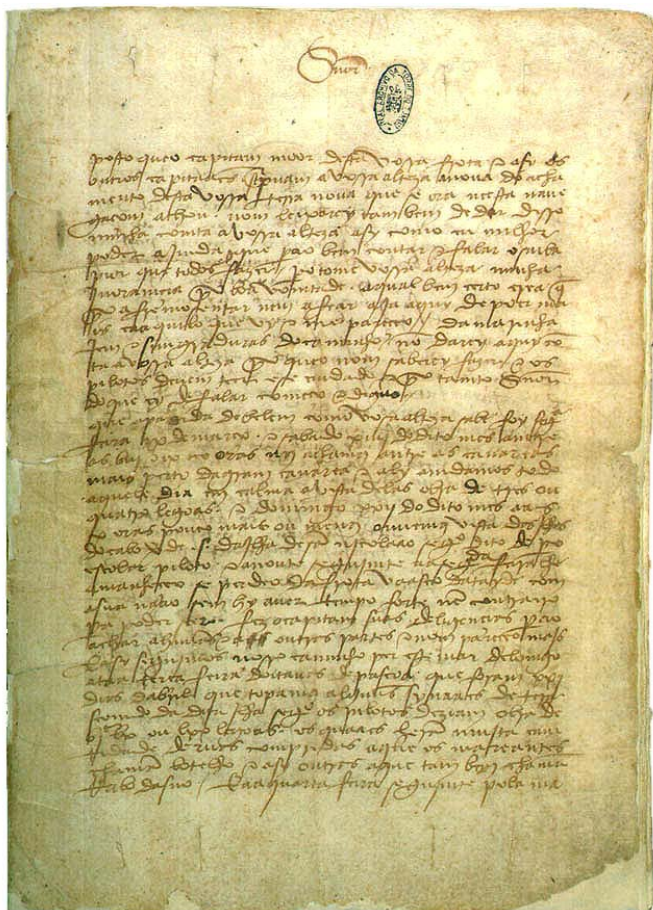 Snõr
posto queo capitam moor desta vossa frota e asy os
outros capitaães screpuam a vossa alteza anoua do acha
mento desta vossa terra noua que se ora neesta naue
gaçom achou. nom leixarey tambem de dar disso
minha comta avossa alteza asy como eu milhor
poder ajmda que pera obem contar e falar o saiba
pior que todos fazer. pero tome vossa alteza minha
jnoramçia por boa vomtade. aqual bem çerto crea q̃
por afremosentar nem afear aja aquy de poer ma
is caaquilo que vy e me pareçeo. / damarinha
jem e simgraduras docaminho nõ darey aquy cõ
ta a vossa alteza por queo nom saberey fazer e os
pilotos deuem teer ese cuidado e por tamto Snõr
do que ey de falar começo e diguo.
quea partida de belem como vosa alteza sabe foy seg.ª
feira ix de março. e sabado xiiij do dito mes amtre
as biij e ix oras nos achamos amtre as canareas
mais perto da gram canarea e aly amdamos todo
aquele dia em calma avista delas obra de tres ou
quatro legoas. e domingo xxij do dito mes aas
x oras pouco mais ou menos ouuemos vista das jlhas
do cabo verde .s. da jlha de sã njcolaao seg.º dito de pº
escolar piloto. e anoute segujmte aasegª feira lhe
amanheçeo se perdeo da frota vaasco datayde com
asua naao sem hy auer tempo forte nẽ contrairo
pera poder seer. fez ocapitam suas deligençias pera o
achar ahũuas e a outras partes e nom pareçeo majs
E asy segujmos nosso caminho per este mar delomgo
ataa terça feira doitauas de pascoa que foram xxj
dias dabril que topamos alguũs synaaes de terra
seemdo da dita jlha segº os pilotos deziam obra de
bjc lx ou lxx legoas. os quaaes heram mujta camti
dade deruas compridas aque os mareantes
chamam botelho e asy outras aque tambem chamã
Rabo dasno. / E aaquarta feira segujmte pola ma